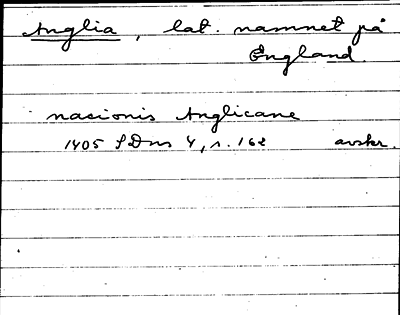 Anglia, lat. namnet på
England.
nacionis Anglicane
1405 SDns 1, s. 162 avskr.